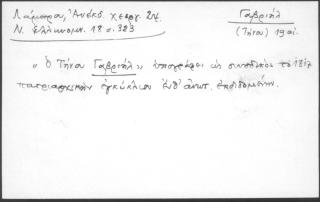 Λάμπρου, Ἀνέκδ. χειρογρ. Σημ.
Ν. Ἑλληνομν. 18 σ. 383
Γαβριήλ
(Τήνου) 19 αἰ.
« ὁ Τήνου Γαβριήλ » ὑπογράφει ὡς συνοδικὸς
πατριαρχικὴν ἐγκύκλιον ἐνθ' ἀνωτ. ἐκδιδομένην.